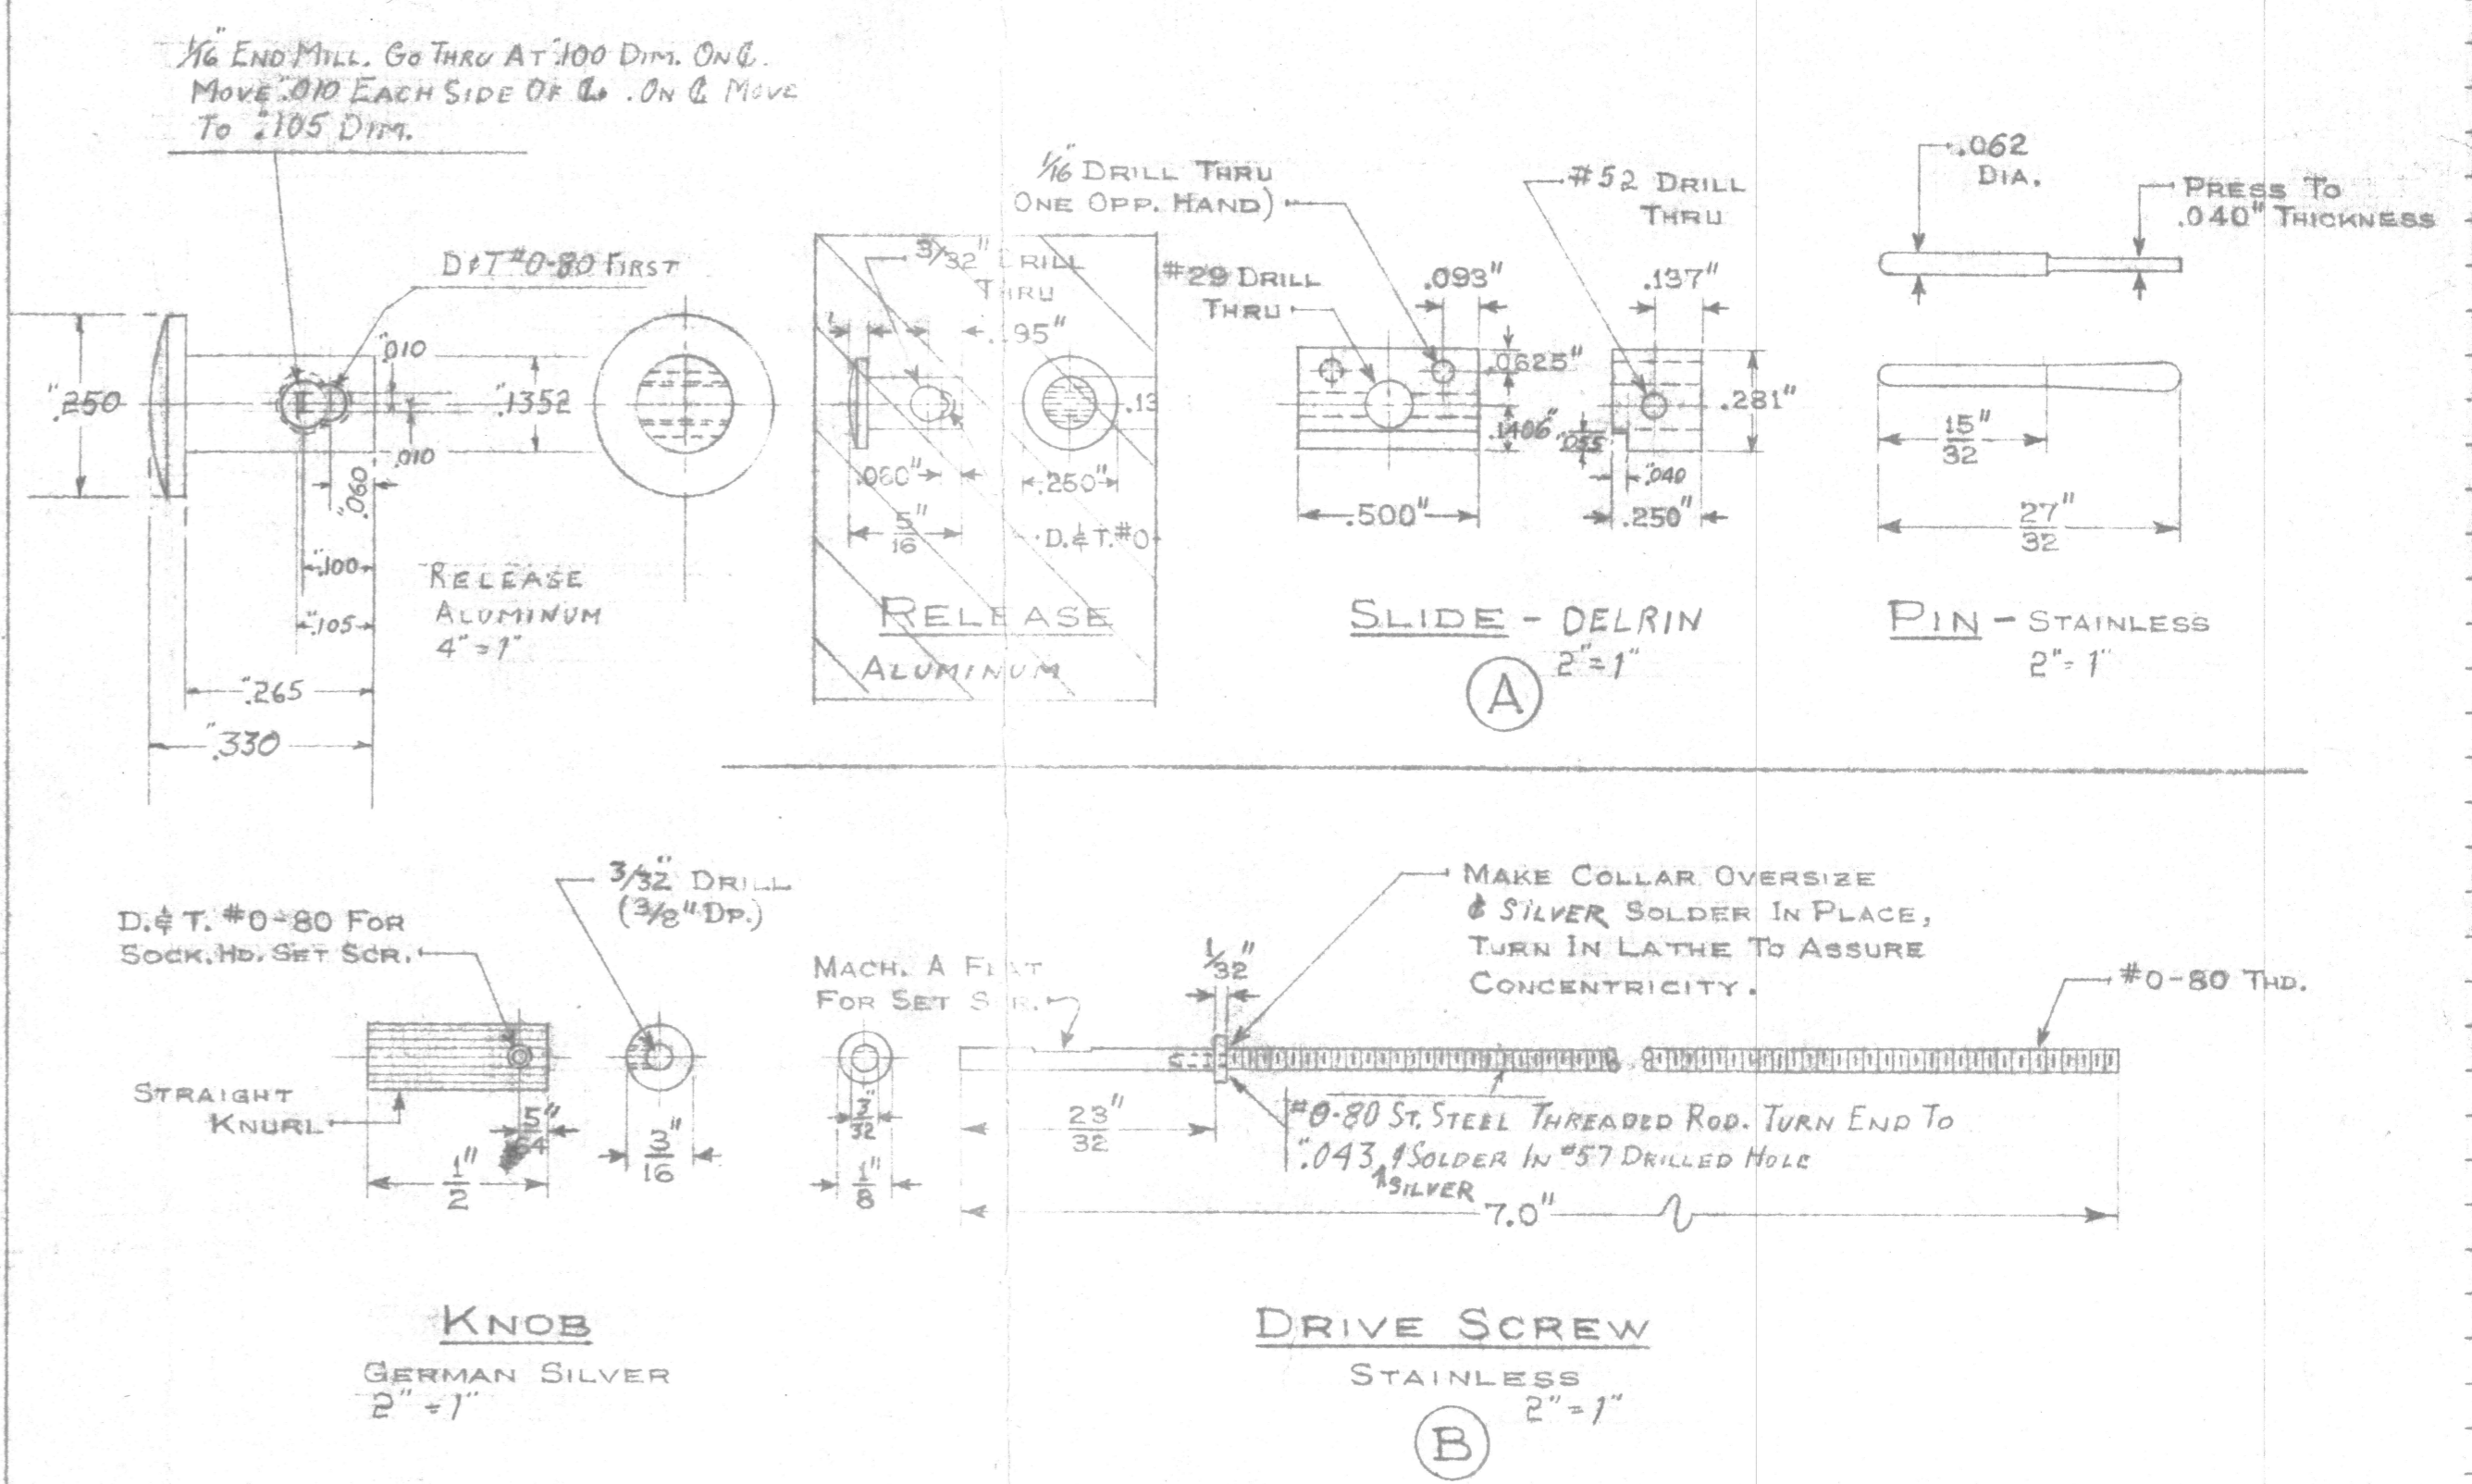 1/16" END MILL. GO THRU AT ".100 DIM. ON ℄.
MOVE ".010 EACH SIDE OF ℄. ON ℄ MOVE
TO ".105 DIM.
D&T #0-80 FIRST
".250
".010
".1352
".010
".060
".100
".105
".265
".330
RELEASE
ALUMINUM
4"=1"
3/32" DRILL
THRU
.195"
.13
.060"
.250"
5"
16
D.&T.#0-
RELEASE
ALUMINUM
1/16" DRILL THRU
ONE OPP. HAND)
#29 DRILL
THRU
#52 DRILL
THRU
.093"
.137"
.0625"
.1406"
".055
.281"
".040
.500"
.250"
SLIDE - DELRIN
2"=1"
A
.062
DIA.
PRESS TO
.040" THICKNESS
15"
32
27"
32
PIN - STAINLESS
2"=1"
D.&T. #0-80 FOR
SOCK. HD. SET SCR.
3/32" DRILL
(3/8" DP.)
STRAIGHT
KNURL
5"
64
1"
2
3"
16
KNOB
GERMAN SILVER
2"=1"
MACH. A FLAT
FOR SET SCR.
3"
32
1"
8
1/32"
MAKE COLLAR OVERSIZE
& SILVER SOLDER IN PLACE,
TURN IN LATHE TO ASSURE
CONCENTRICITY.
#0-80 THD.
23"
32
#0-80 ST. STEEL THREADED ROD. TURN END TO
".043 & SOLDER IN #57 DRILLED HOLE
SILVER
7.0"
DRIVE SCREW
STAINLESS
2"=1"
B